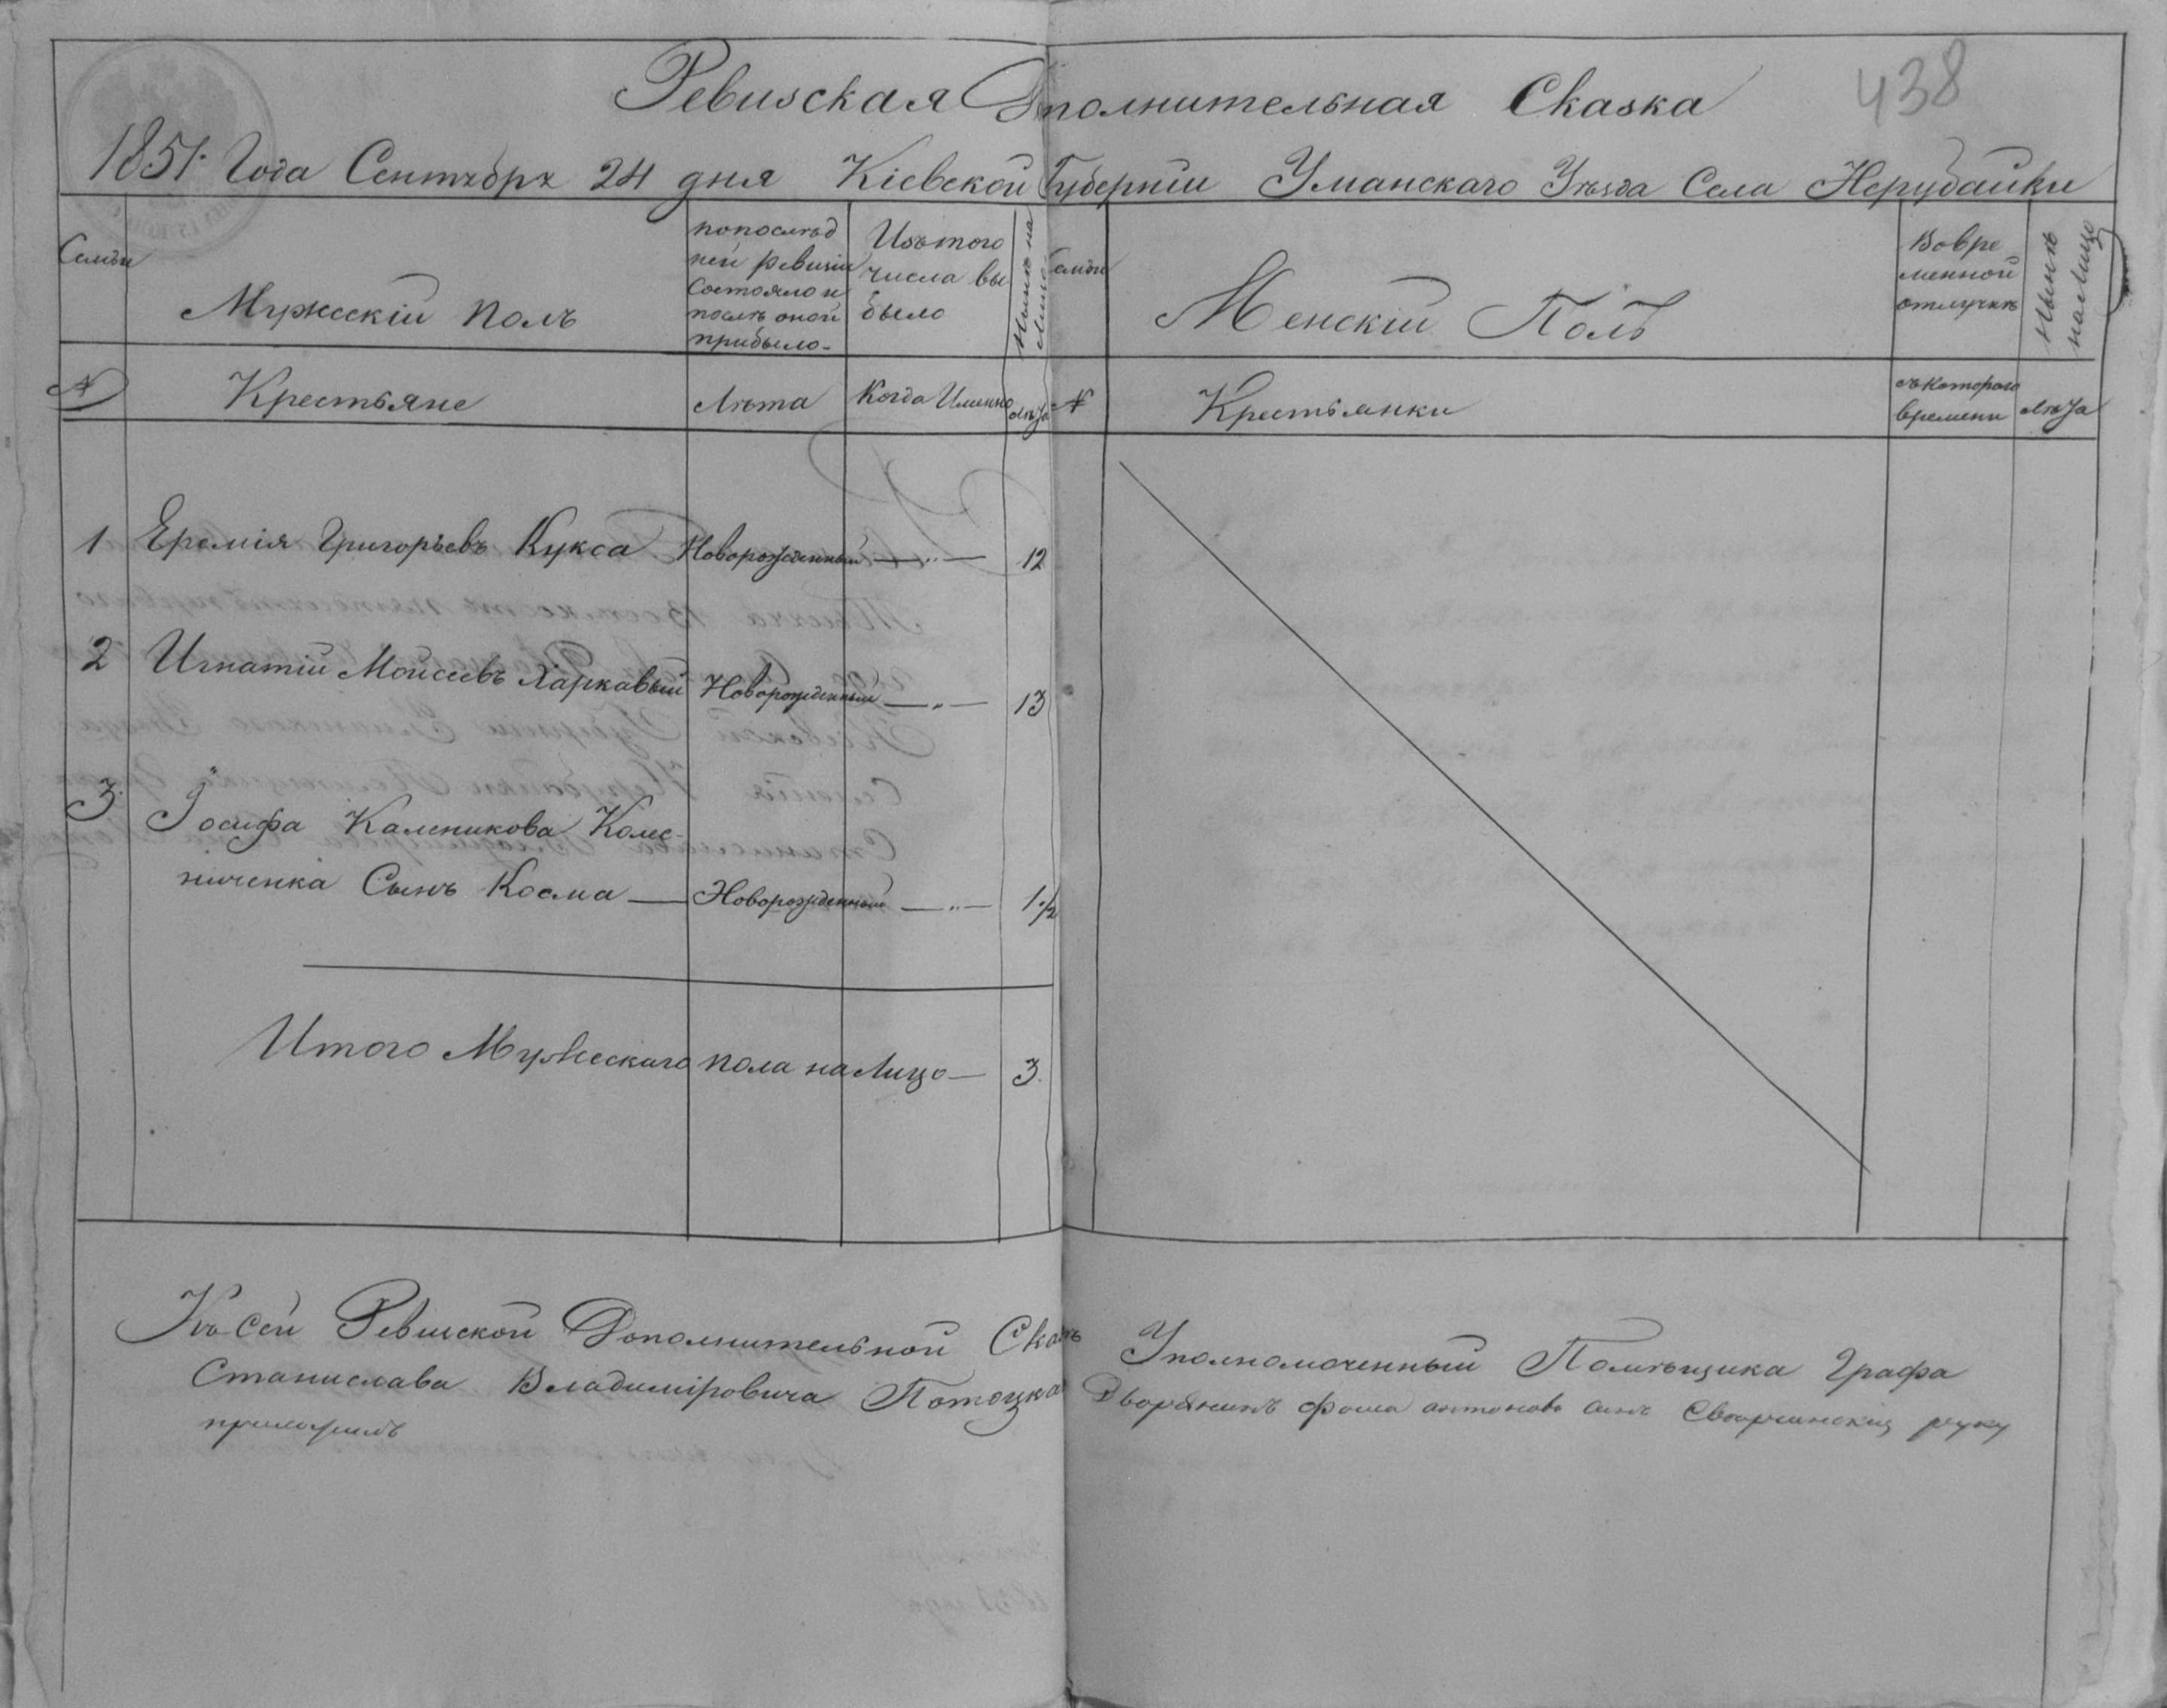 438
Ревизская Дополнительная Сказка
1851 Года Сентября 24 дня Кіевской Губерніи Уманскаго Уѣзда Села Нерубайки
Семьи
Мужескій полъ
попослѣд
ней ревизіи
состояло и
послѣ оной
прибыло
Изъ того
числа вы
было
Нынѣ на
Лицо
Семьи
Женскій Полъ
Вовре
менной
отлучкѣ
Нынѣ
на Лицо
№
Крестьяне
Лѣта
Когда Именно
Лѣта
№
Крестьянки
съ котораго
времени
Лѣта
1 Еремія Григорьевъ Кукса Новорожденный — „ — 12
2 Игнатій Моисеевъ Харкавый Новорожденный — „ — 13
3. Іосифа Каленикова Колес-
ниченка Сынъ Косма — Новорожденный — „ — 1 ½
Итого Мужескаго пола на Лицо — 3.
Къ сей Ревизской Дополнительной Сказкѣ Уполномоченный Помѣщика Графа
Станислава Владиміровича Потоцкаго Дворянинъ Фома антоновъ сынъ руку
приложилъ